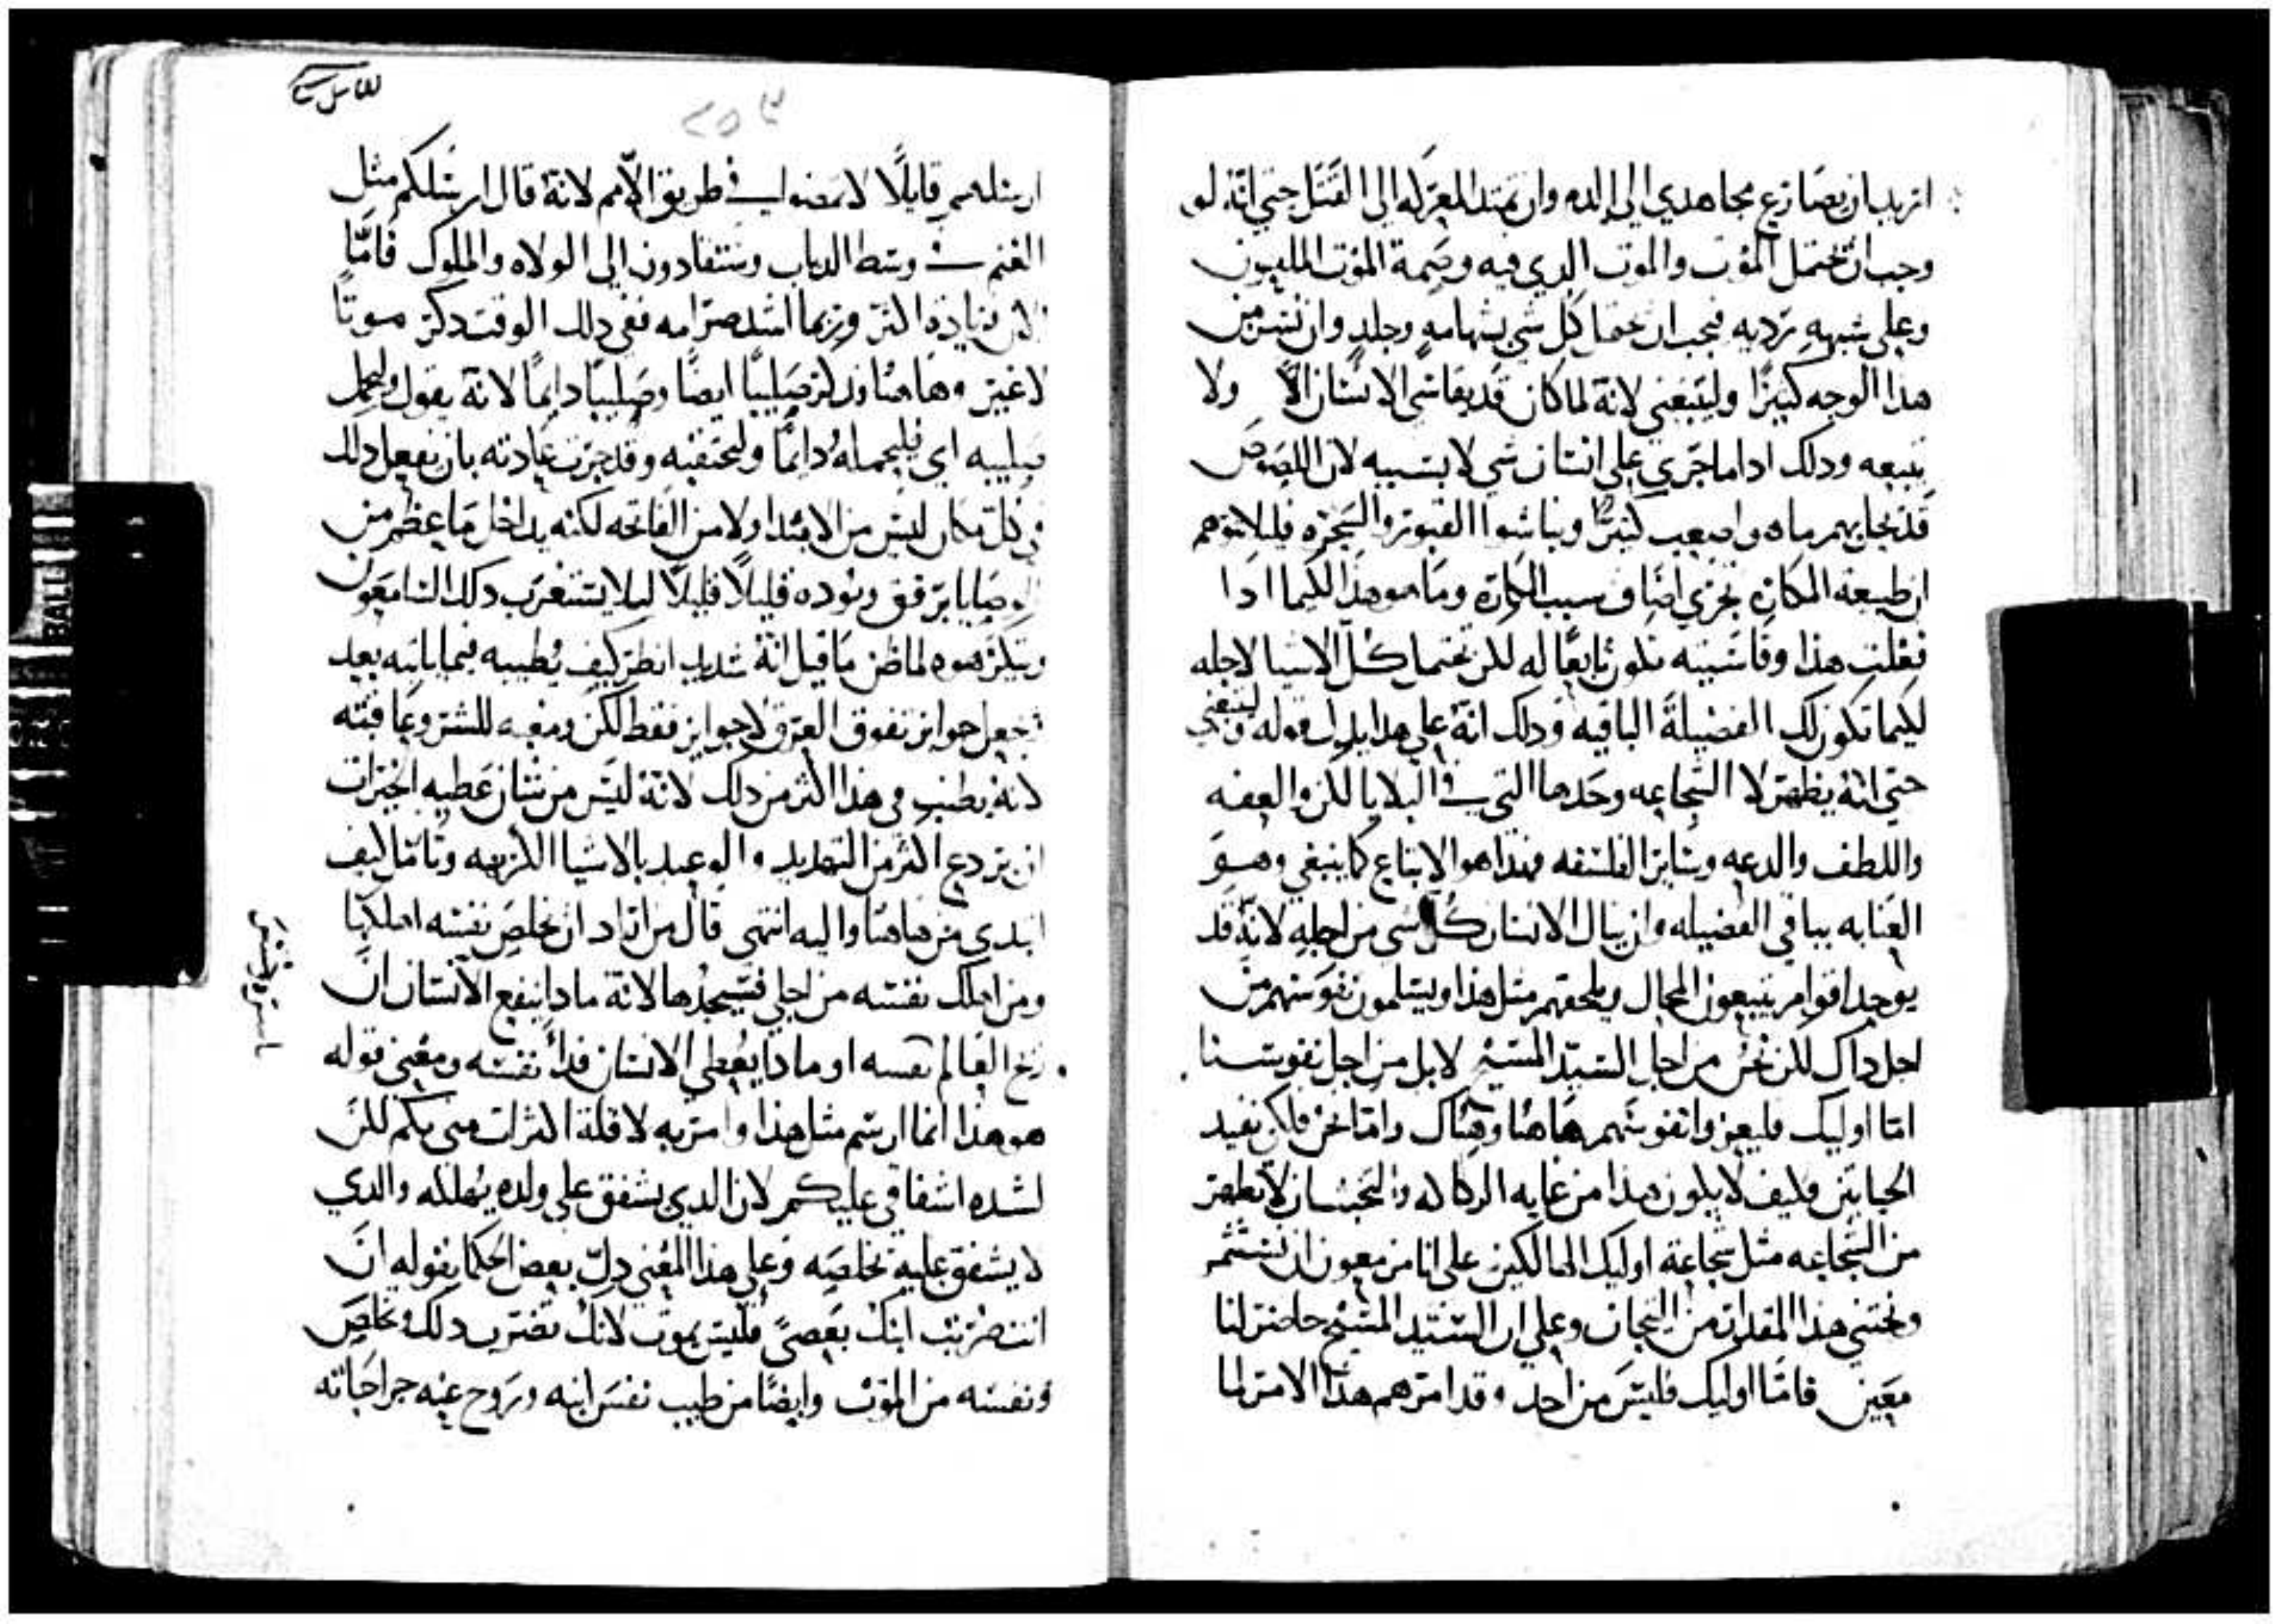 اريد ان يصارع مجاهدي الي الده وان تمتد المعركه الي القتل حتي انه لو
وجب ان تحتمل الموت والموت الدي فيه وصمة الموت الملعون
وعلي شبهه ترديه فيجب ان تحتمل كل شي بشهامه وجلد وان نسر من
هدا الوجه كثيرًا وليتبعني لانه لما كان قد يقاسي الانسان الامًا ولا
يتبعه ودلك اداما جري علي انسان شي لا بسببه لان اللصوص
قد تجلبهم ماه واصعب كثيرًا ونباشوا القبور والسحره فليلا يتوهم
ان طبيعة المكاره تجزي اضاف سبب المكاره وما هو هدا لكيما ادا
فعلت هذا وقاسيته تكون تابعًا له لكن تحتمل كل الاشيا لاجله
لكيما تكون لك الفضيلة الباقيه ودلك انه علي هدا يدل قوله وليتبعني
حتي انه يظهر لا الشجاعه وحدها التي في البلايا لكن والعفه
واللطف والدعه وساير الفلسفه فهدا هو الاتباع كما ينبغي وهو
العنايه بباقي الفضيله وان ينال الانسان كل شي من اجله لانه قد
يوجد اقوام يتبعون المحال ويلحقهم مثل هدا ويسلمون نفوسهم من
اجل داك لكن نحن من اجل السيد المسيح لا بل من اجل نفوسنا
امّا اوليك فليعزوا نفوسهم هاهنا وهناك وامّا نحن فلكي نفيد
الحياتين فكيف لا يكون هدا من غايه الركاكه والخبسان لا نظهر
من الشجاعه مثل شجاعة اوليك الهالكين علي انا مزمعون ان نستثمر
ونجتني هذا المقدار من التيجان وعلي ان السيد المسيح حاضر لنا
معين فامّا اوليك فليس من احد وقد امرهم هدا الامر لما
للقاس
٢٥٣
ارسلهم قايلًا لا تمضوا في طريق الامم لانه قال ارسلكم مثل
الغنم في وسط الدياب وستقادون الي الولاه والملوك فامّا
الان بزياده اكثر وربما اشد صرامه ففي دلك الوقت دكر موتًا
لا غير وهاهنا فدكر صليبًا ايضًا وصليبًا دايمًا لانه يقول وليحمل
صليبه اي فليحمله دايمًا وليحتفنه وقد جرت عادته بان يفعل دلك
في كل مكان ليس من الابتدا ولا من الفاتحه لكنه يداخل ما عظم من
الوصايا برفق وتوده قليلًا قليلًا ليلا يستغرب دلك السامعون
ويتكرهوه لما ظن ما قيل انه شديد انظر كيف يطيبه فيما ياتيه بعد
ويجعل جوايز تفوق العرق لا جوايز فقط لكن ومغبه للشر وعاقبته
لانه يطنب في هذا اكثر من دلك لانه ليس من شان عطيه الخيرات
ان تردع اكثر من التهديد والوعيد بالاشيا الكريهه وتامّل كيف
ابتدي من هاهنا واليه انتهي قال من اراد ان يخلص نفسه اهلكها
ومن اهلك نفسه من اجلي فسيجدها لانه مادا ينفع الانسان ان
ربح العالم نفسه او مادا يعطي الانسان فداً نفسه ومعني قوله
هو هذا انما ارسم مثل هذا وامر به لا قلة اكتراث مني بكم لكن
لشده اشفاقي عليكم لان الدي يشفق علي ولده يهلكه والدي
لا يشفق عليه يخلصه وعلي هذا المعني دلّ بعض الحكما بقوله انّ
انت ضربت ابنك بعصيً فليس يموت لانك تضرب دلك وتخلص
ونفسه من الموت وايضًا من طيب نفس ابنه وتروح عنه جراحاته